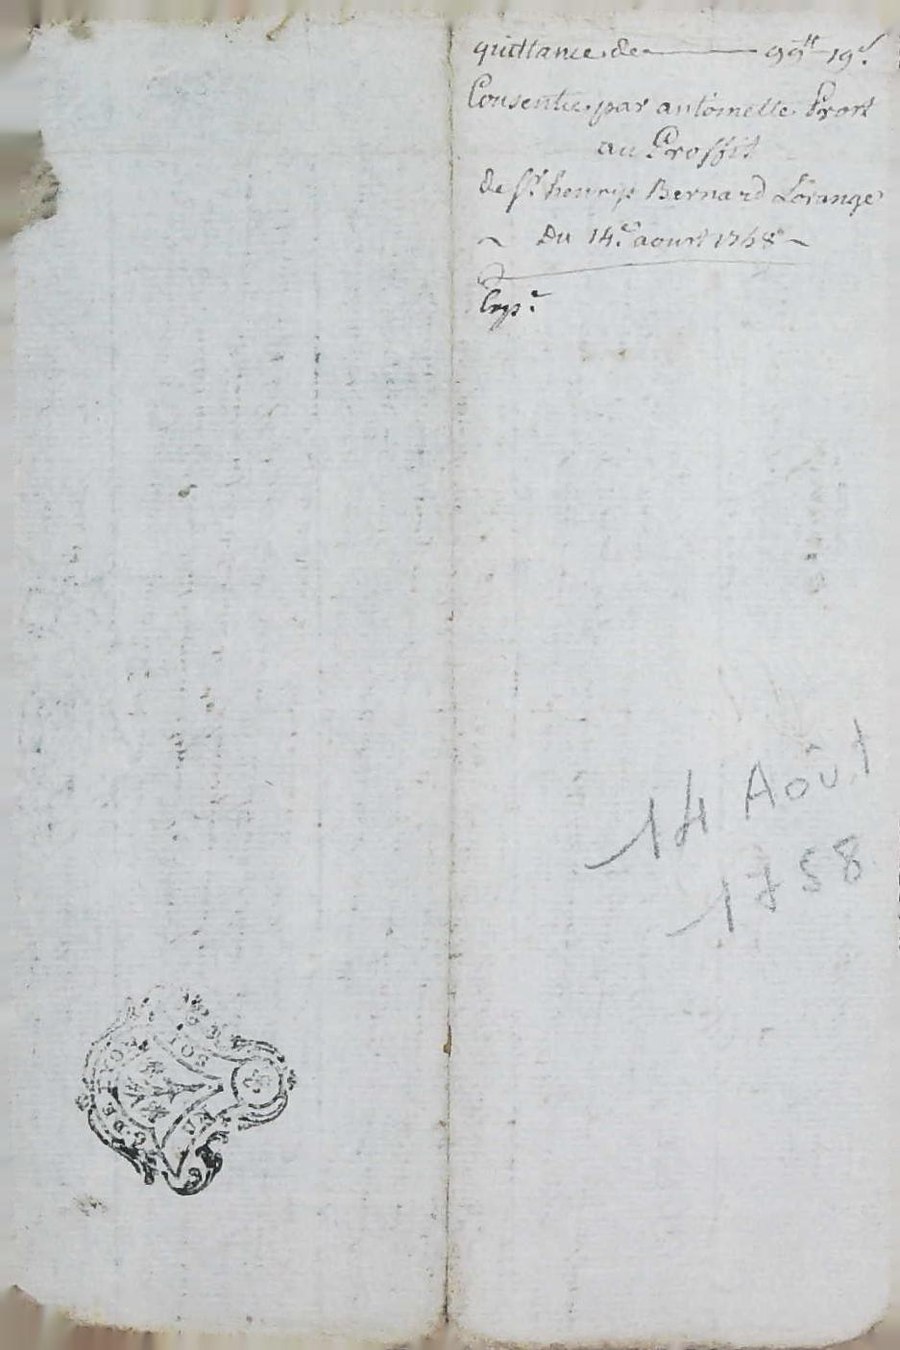 quittance de 99ᵗᵗ 19ˢ
Consentie par antoinette
au Proffit
de Sʳ henrys Bernard Lorange
Du 14ᵉ aoust 1758
Expᵉ
14 Août
1758
G. DE LYON